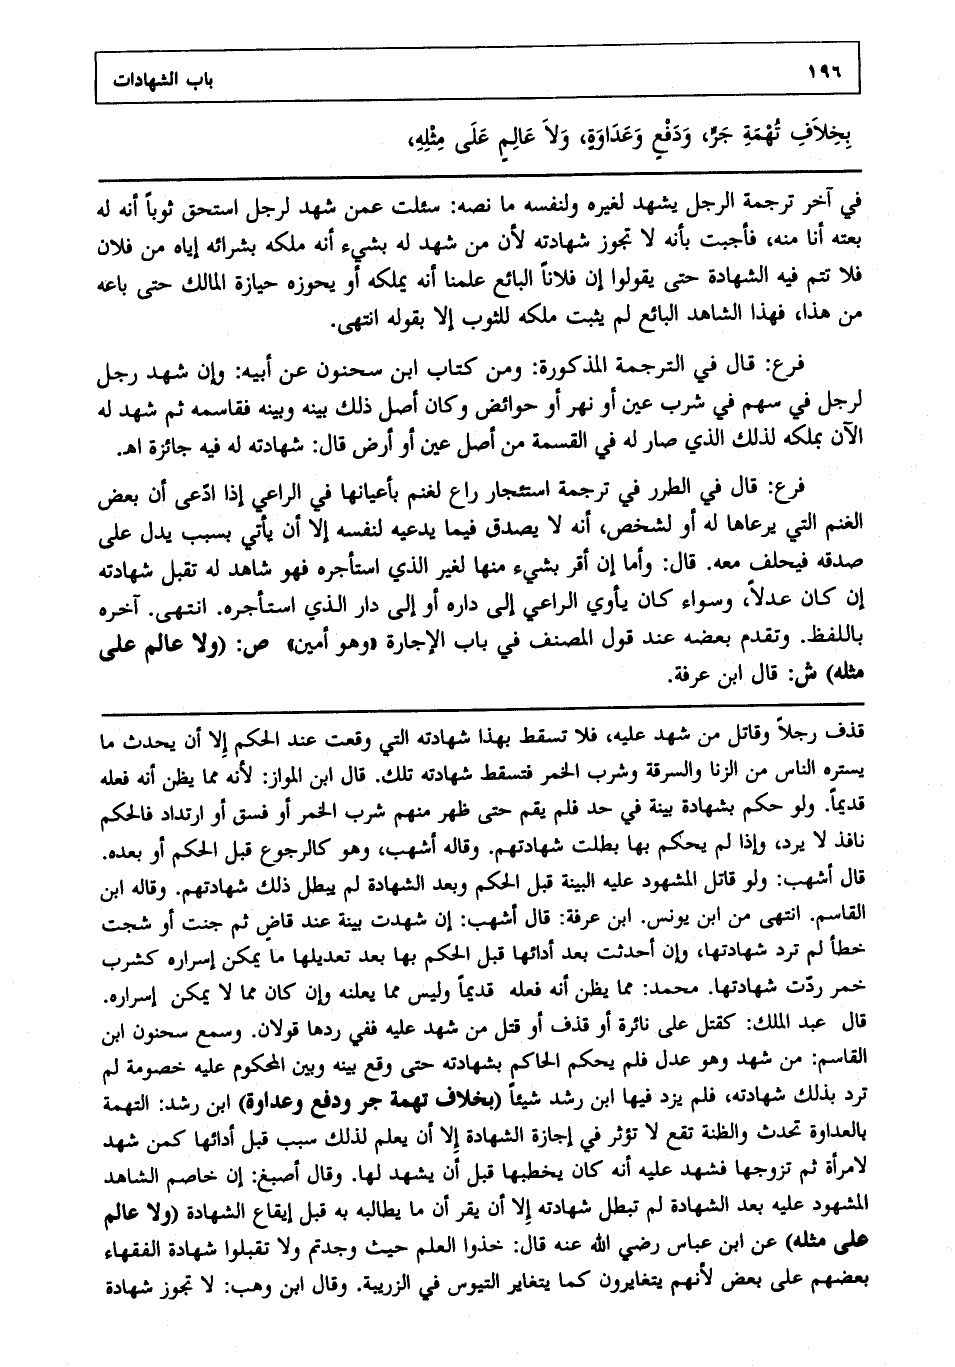 ١٩٦
باب الشهادات
بِخِلاَفِ تُهْمَةِ جَرٍّ، وَدَفْعٍ وَعَدَاوَةٍ، وَلاَ عَالِمٍ عَلَى مِثْلِهِ،
في آخر ترجمة الرجل يشهد لغيره ولنفسه ما نصه: سئلت عمن شهد لرجل استحق ثوباً أنه له
بعته أنا منه، فأجبت بأنه لا تجوز شهادته لأن من شهد له بشيء أنه ملكه بشرائه إياه من فلان
فلا تتم فيه الشهادة حتى يقولوا إن فلاناً البائع علمنا أنه يملكه أو يحوزه حيازة المالك حتى باعه
من هذا، فهذا الشاهد البائع لم يثبت ملكه للثوب إلا بقوله انتهى.
فرع: قال في الترجمة المذكورة: ومن كتاب ابن سحنون عن أبيه: وإن شهد رجل
لرجل في سهم في شرب عين أو نهر أو حوائض وكان أصل ذلك بينه وبينه فقاسمه ثم شهد له
الآن بملكه لذلك الذي صار له في القسمة من أصل عين أو أرض قال: شهادته له فيه جائزة اهـ.
فرع: قال في الطرر في ترجمة استئجار راع لغنم بأعيانها في الراعي إذا ادّعى أن بعض
الغنم التي يرعاها له أو لشخص، أنه لا يصدق فيما يدعيه لنفسه إلا أن يأتي بسبب يدل على
صدقه فيحلف معه. قال: وأما إن أقر بشيء منها لغير الذي استأجره فهو شاهد له تقبل شهادته
إن كان عدلاً، وسواء كان يأوي الراعي إلى داره أو إلى دار الذي استأجره. انتهى. آخره
باللفظ. وتقدم بعضه عند قول المصنف في باب الإجارة «وهو أمين» ص: (ولا عالم على
مثله) ش: قال ابن عرفة.
قذف رجلاً وقاتل من شهد عليه، فلا تسقط بهذا شهادته التي وقعت عند الحكم إلا أن يحدث ما
يستره الناس من الزنا والسرقة وشرب الخمر فتسقط شهادته تلك. قال ابن المواز: لأنه مما يظن أنه فعله
قديماً. ولو حكم بشهادة بينة في حد فلم يقم حتى ظهر منهم شرب الخمر أو فسق أو ارتداد فالحكم
نافذ لا يرد، وإذا لم يحكم بها بطلت شهادتهم. وقاله أشهب، وهو كالرجوع قبل الحكم أو بعده.
قال أشهب: ولو قاتل المشهود عليه البينة قبل الحكم وبعد الشهادة لم يبطل ذلك شهادتهم. وقاله ابن
القاسم. انتهى من ابن يونس. ابن عرفة: قال أشهب: إن شهدت بينة عند قاضٍ ثم جنت أو شجت
خطأ لم ترد شهادتها، وإن أحدثت بعد أدائها قبل الحكم بها بعد تعديلها ما يمكن إسراره كشرب
خمر ردّت شهادتها. محمد: مما يظن أنه فعله قديماً وليس مما يعلنه وإن كان مما لا يمكن إسراره.
قال عبد الملك: كقتل على نائرة أو قذف أو قتل من شهد عليه ففي ردها قولان. وسمع سحنون ابن
القاسم: من شهد وهو عدل فلم يحكم الحاكم بشهادته حتى وقع بينه وبين المحكوم عليه خصومة لم
ترد بذلك شهادته، فلم يزد فيها ابن رشد شيئاً (بخلاف تهمة جر ودفع وعداوة) ابن رشد: التهمة
بالعداوة تحدث والظنة تقع لا تؤثر في إجازة الشهادة إلا أن يعلم لذلك سبب قبل أدائها كمن شهد
لامرأة ثم تزوجها فشهد عليه أنه كان يخطبها قبل أن يشهد لها. وقال أصبغ: إن خاصم الشاهد
المشهود عليه بعد الشهادة لم تبطل شهادته إلا أن يقر أن ما يطالبه به قبل إيقاع الشهادة (ولا عالم
على مثله) عن ابن عباس رضي الله عنه قال: خذوا العلم حيث وجدتم ولا تقبلوا شهادة الفقهاء
بعضهم على بعض لأنهم يتغايرون كما يتغاير التيوس في الزريبة. وقال ابن وهب: لا تجوز شهادة